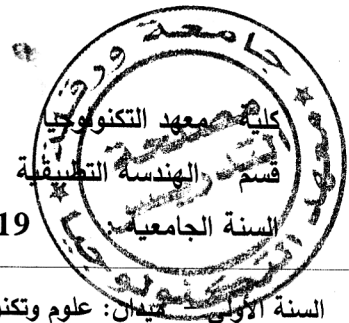 جامعة ورقلة
معهد التكنولوجيا
كلية معهد التكنولوجيا
قسم الهندسة التطبيقية
السنة الجامعية : 19
السنة الأولى - ميدان: علوم وتكنو